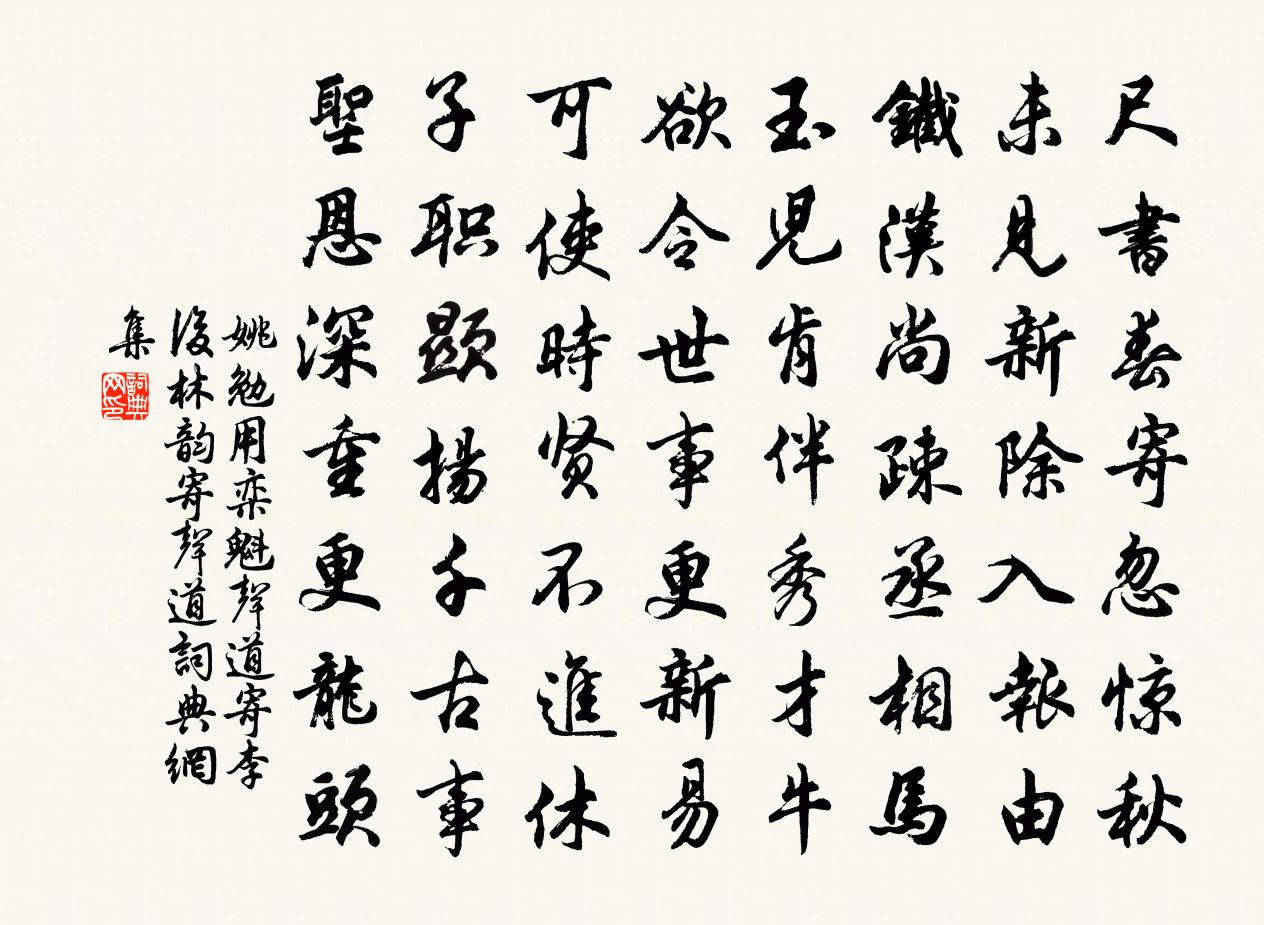 尺書春寄忽惊秋
未見新除入報由
鐵漢尚疎丞相馬
玉児肯伴秀才牛
欲令世事更新易
可使時贤不進休
子职顯揚千古事
聖恩深重更龍頭
姚勉用栾魁聲道寄李
後林韵寄聲道詞典網
集
詞典网印